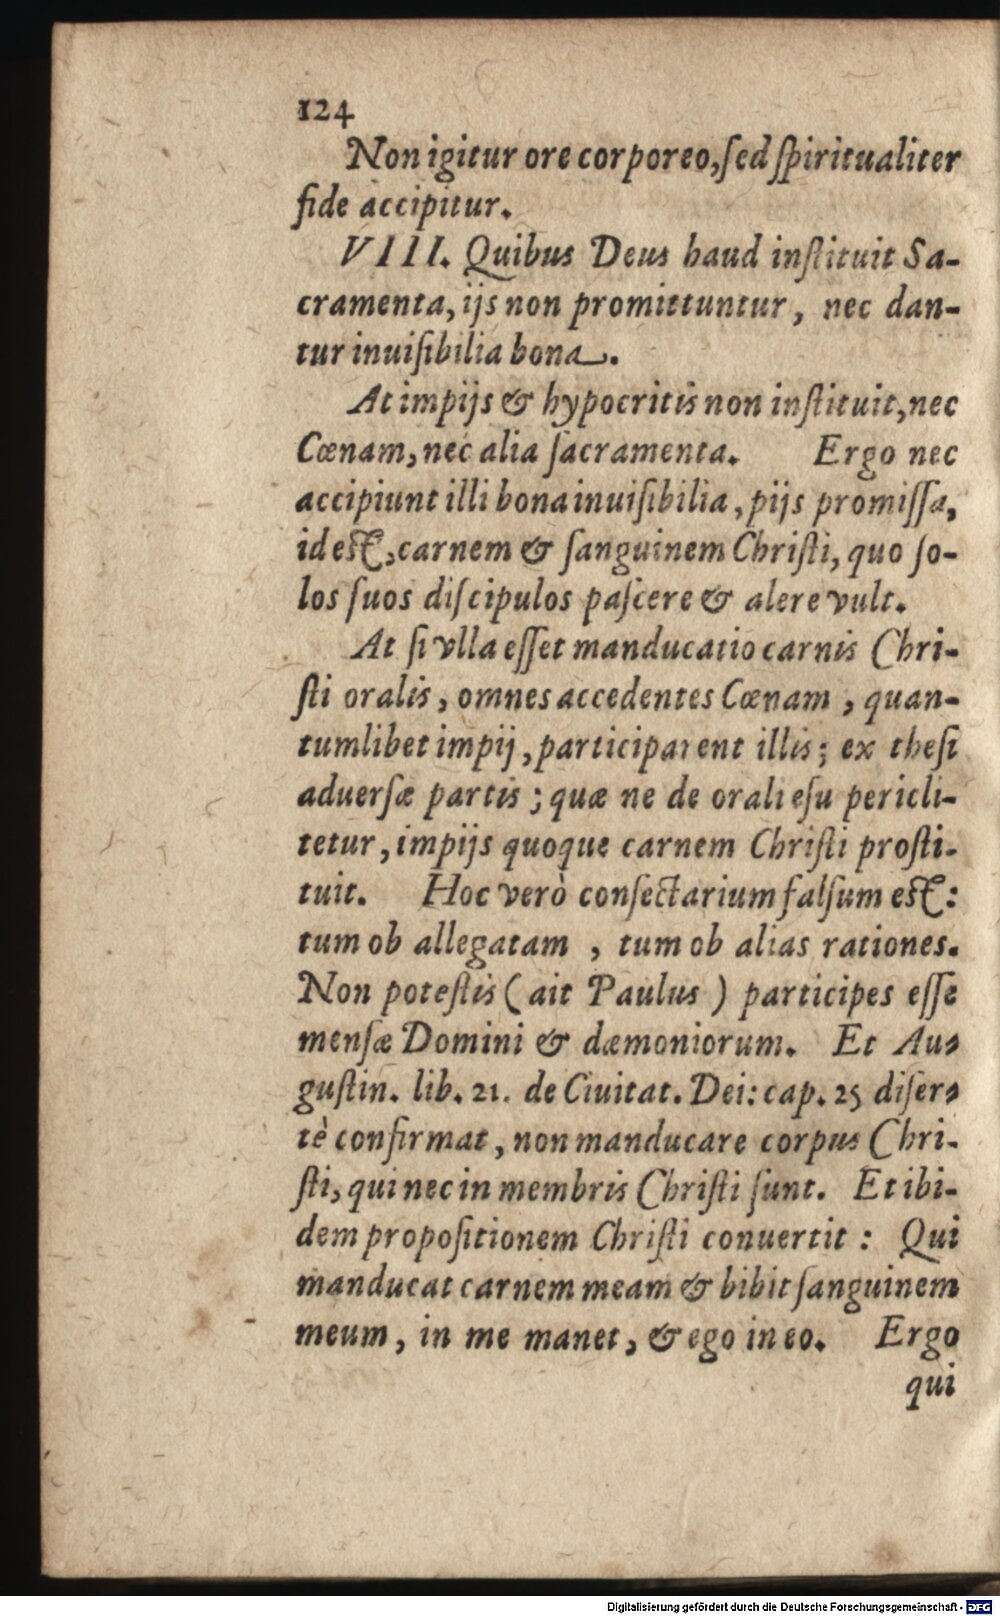 124
Non igitur ore corporeo, ſed ſpiritualiter
fide accipitur.
VIII. Quibus Deus haud inſtituit Sa-
cramenta, ijs non promittuntur, nec dan-
tur inuiſibilia bona.
At impijs & hypocritis non inſtituit, nec
Cœnam, nec alia ſacramenta. Ergo nec
accipiunt illi bona inuiſibilia, pijs promiſſa,
id eſt, carnem & ſanguinem Chriſti, quo ſo-
los ſuos diſcipulos paſcere & alere vult.
At ſi vlla eſſet manducatio carnis Chri-
ſti oralis, omnes accedentes Cœnam, quan-
tumlibet impij, participarent illis; ex theſi
aduerſæ partis; quæ ne de orali eſu pericli-
tetur, impijs quoque carnem Chriſti proſti-
tuit. Hoc verò conſectarium falſum eſt:
tum ob allegatam, tum ob alias rationes.
Non poteſtis (ait Paulus) participes eſſe
menſæ Domini & dæmoniorum. Et Au-
guſtin. lib. 21. de Ciuitat. Dei: cap. 25 diſer-
tè confirmat, non manducare corpus Chri-
ſti, qui nec in membris Chriſti ſunt. Et ibi-
dem propoſitionem Chriſti conuertit: Qui
manducat carnem meam & bibit ſanguinem
meum, in me manet, & ego in eo. Ergo
qui
Digitalisierung gefördert durch die Deutsche Forschungsgemeinschaft - DFG